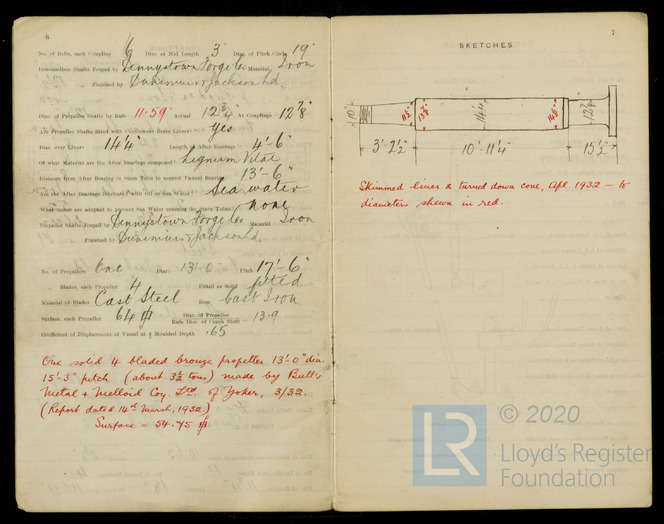 6
No. of Bolts, each Coupling 6 Diar. at Mid Length 3" Diar. of Pitch Circle 19"
Intermediate Shafts Forged by Dennystown Forge Co Material Iron
„ Finished by Dunsmuir & Jackson Ld.
Diar. of Propeller Shafts by Rule 11.59" Actual 12 3/4" At Couplings 12 7/8"
Are Propeller Shafts fitted with Continuous Brass Liners? Yes
Diar. over Liners 14 1/4" Length of After Bearings 4'-6"
Of what Material are the After Bearings composed? Lignum Vitae
Distance from After Bearing in Stern Tube to nearest Tunnel Bearing 13'-6"
Are the After Bearings lubricated with Oil or Sea Water? Sea water
What means are adopted to prevent Sea Water entering the Stern Tubes? none
Propeller Shafts Forged by Dennystown Forge Co Material Iron
„ Finished by Dunsmuir & Jackson Ld.
No. of Propellers One Diar. 13'-0" Pitch 17'-6"
„ Blades, each Propeller 4 Fitted or Solid fitted
Material of Blades Cast Steel Boss Cast Iron
Surface, each Propeller 64 ft Diar. of Propeller / Rule Diar. of Crank Shaft 13.9
Coefficient of Displacement of Vessel at Moulded Depth .65
One solid 4 bladed bronze propeller 13'-0" dia
15'-3" pitch (about 3 1/2 tons) made by Bull's
Metal & Melloid Coy. Ltd of Yoker, 3/32.
(Report dated 14th March, 1932)
Surface = 54.75 ft
7
SKETCHES.
10" 11 1/2" 13 3/8" 14 1/4" 14 1/8" 12 7/8"
3'-2 1/2" 10'-11 1/4" 15 1/2"
Skimmed liner & turned down cone, Apl. 1932 – to
diameters shewn in red.
LR © 2020
Lloyd's Register
Foundation